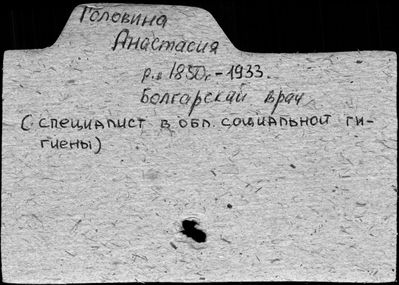 Головина
Анастасия
р.в 1850г.-1933.
Болгарский врач
(специалист в обл. социальной ги-
гиены)